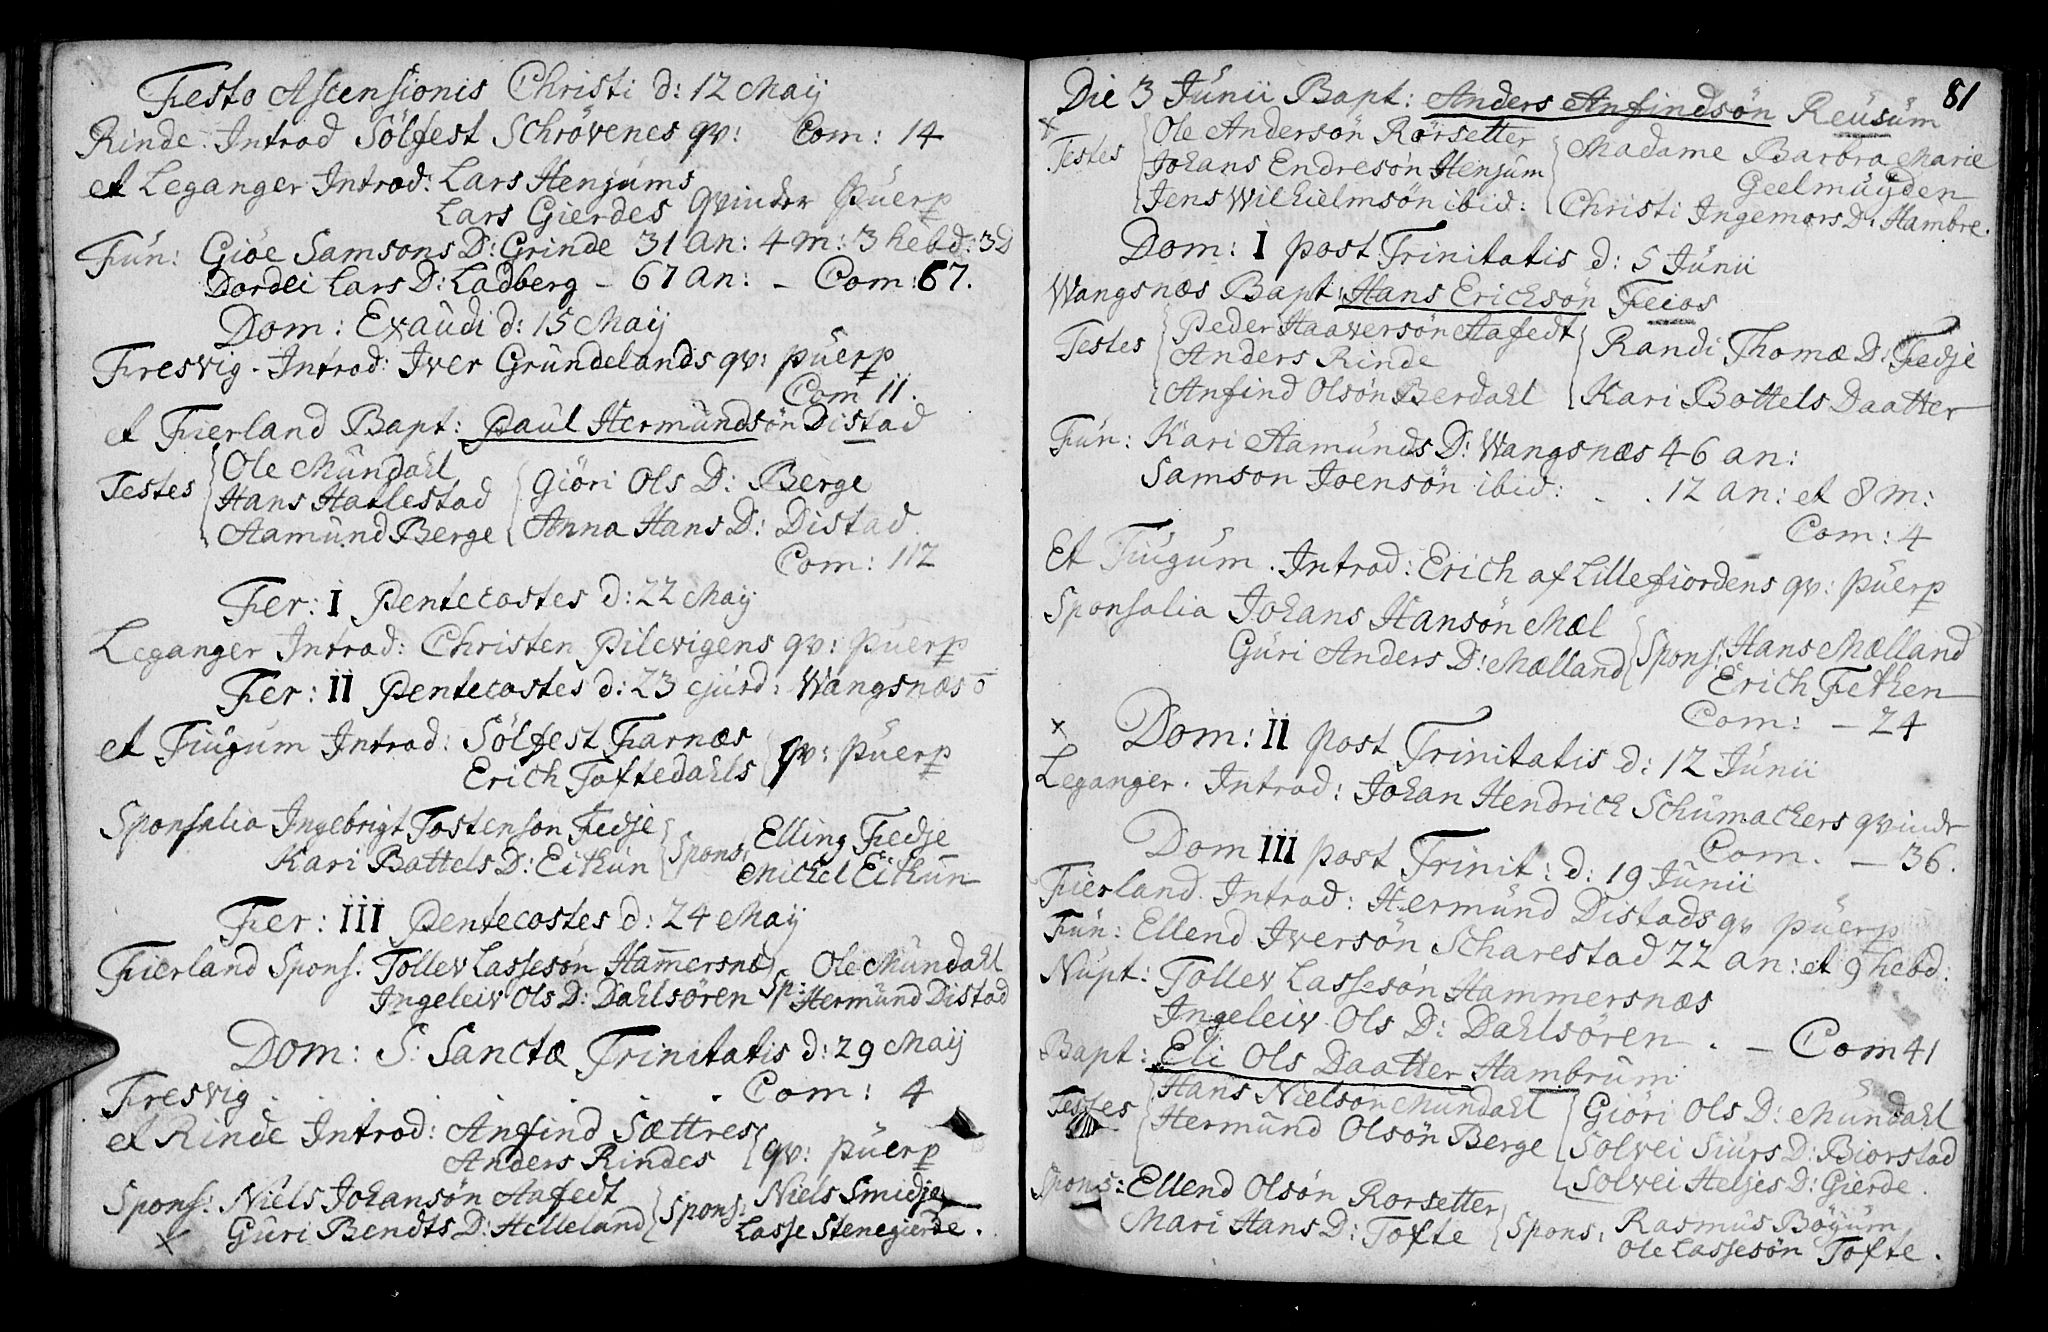 Festo Ascensionis Christi d: 12 Maij
Rinde. Introd Sölfest Schrövenes qv: Com: 14
et Leganger Introd: Lars Henjums
Lars Gierdes qvinder Püerp
Fün: Giöe Samsons D: Grinde 31 an: 4 m: 3 hebd: 3 D
Dordei Lars D: Ladberg – 67 an: – Com: 67.
Dom: Exaudi d: 15 Maij
Fresvig. Introd: Iver Gründelands qv: püerp
Com 11.
et Fierland Bapt: Paul Hermündsön Distad
Testes Ole Mündahl
Hans Hatlestad
Aamünd Berge
Giöri Ols D: Berge
Anna Hans D: Distad
Com: 112
Fer: I Pentecostes d: 22 Maij
Leganger Introd: Christen Pilevigens qv: püerp
Fer: II Pentecostes d: 23 ejusd: Wangsnæs
et Fiügum Introd: Sölfest Farnæs
Erich Toftedahls qv: püerp
Sponsalia Ingebrigt Tostensön Fedje
Kari Battels D: Eitkün
Spons. Elling Fedje
Michel Eitkün
Fer: III Pentecostes d: 24 Maij
Fierland Spons: Tollev Lassesön Ham̅ersnæs
Ingeleiv Ols D: Dahlsören
Sp: Ole Mündahl
Hermünd Distad
Dom: S: Sanctæ Trinitatis d: 29 Maij
Fresvig . . . . . . Com: 4
et Rinde Introd: Anfind Sættres
Anders Rindes qv: püerp
Spons: Niels Johansön Aafedt
Güri Bendts D: Helleland
Spons: Niels Smidje
Lasse Stenegierde.
81
Die 3 Jünii Bapt: Anders Anfindsön Reüsüm
Testes Ole Andersön Rörsetter
Johans Endresön Henjüm
Jens Wilhielmsön ibid:
Madame Barbra Marie
Geelmüyden
Christi Ingemors D: Hambre.
Dom: I post Trinitatis d: 5 Jünii
Wangsnæs Bapt: Hans Ericksön Feios
Testes Peder Haaversön Aafedt
Anders Rinde
Anfind Olsön Berdahl
Randi Thomæ D: Fedje
Kari Bottels Daatter
Fün: Kari Aamünds D: Wangsnæs 46 an:
Samson Joensön ibid: . . 12 an: et 8 m:
Com: 4
Et Fiügum. Introd: Erich af Lillefiordens qv: püerp
Sponsalia Johans Hansön Mæl
Güri Anders D: Mælland
Spons: Hans Mælland
Erich Fetken
Com: – 24
Dom: II post Trinitatis d: 12 Jünii
Leganger. Introd: Johan Hendrick Schümackers qvindr
Com. – 36.
Dom III post Trinit: d: 19 Jünii
Fierland. Introd: Hermünd Distads qv püerp
Fün: Ellend Iversön Scharestad 22 an: et 9 hebd:
Nüpt: Tollev Lassesön Hammersnæs
Ingeleiv Ols D: Dahlsören . – Com 41
Bapt: Eli Ols Daatter Hambrüm
Testes Hans Nielsön Mündahl
Hermünd Olsön Berge
Giöri Ols D: Mündahl
Solvei Siurs D: Biorstad
Solvei Heljes D: Gierde.
Spons: Ellend Olsön Rorsetter
Mari Hans D: Tofte
Spons, Rasmüs Böyum
Ole Lassesön Tofte.